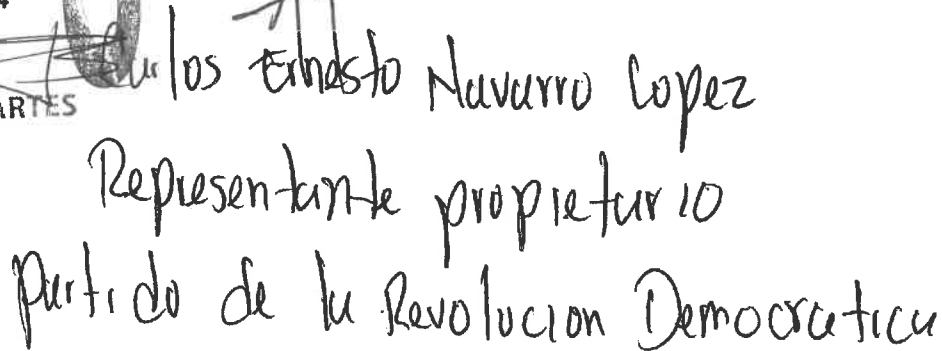 Carlos Ernesto Navarro Lopez
ARTES
Representante propietario
partido de la Revolucion Democratica